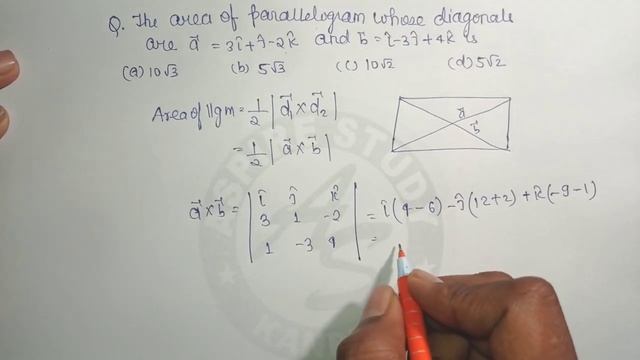 Q. The area of parallelogram whose diagonals
are a⃗ = 3î+ĵ-2k̂ and b⃗ = î-3ĵ+4k̂ is
(a) 10√3 (b) 5√3 (c) 10√2 (d) 5√2
Area of llgm = 1/2 |d⃗₁ × d⃗₂|
= 1/2 |a⃗ × b⃗|
a⃗
b⃗
a⃗ × b⃗ = | î ĵ k̂ | = î(4-6) - ĵ(12+2) + k̂(-9-1)
| 3 1 -2 |
| 1 -3 4 | =